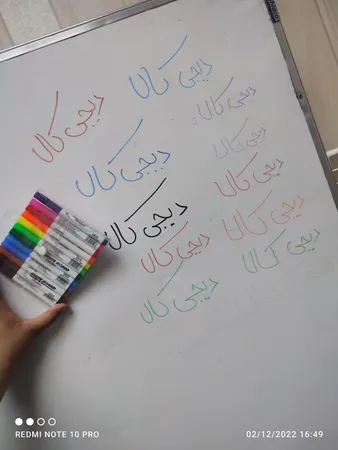 دیجی کالا
دیجی کالا
دیجی کالا
دیجی کالا
دیجی کالا
دیجی کالا
دیجی کالا
دیجی کالا
دیجی کالا
دیجی کالا
دیجی کالا
REDMI NOTE 10 PRO
02/12/2022 16:49